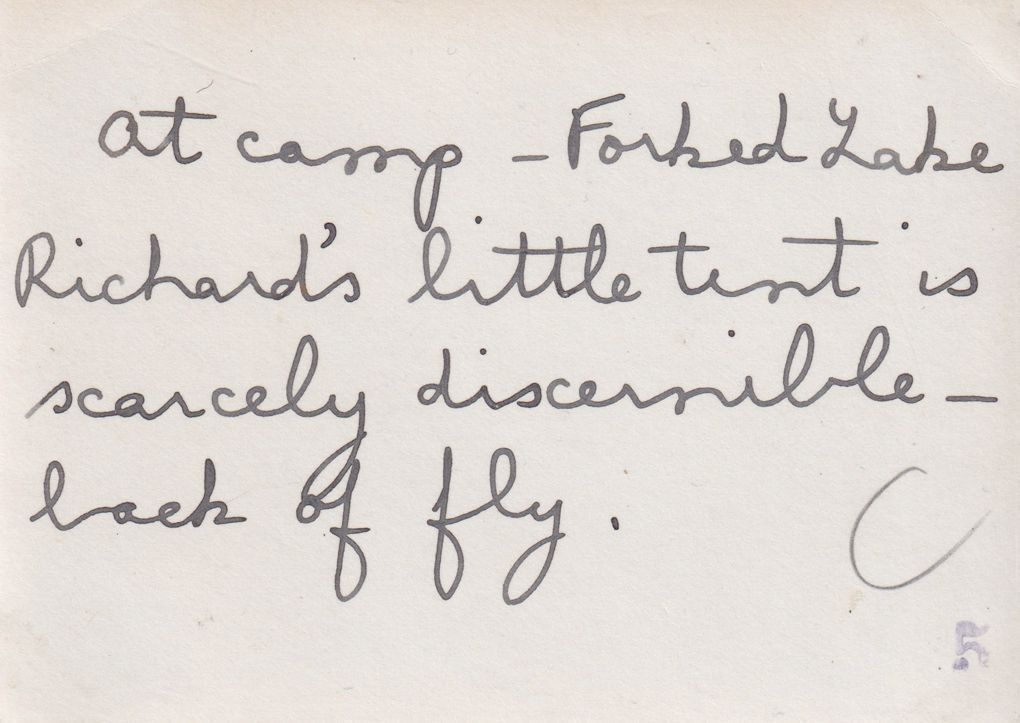 At camp - Forked Lake
Richard's little tent is
scarcely discernible -
back of fly.
C
5